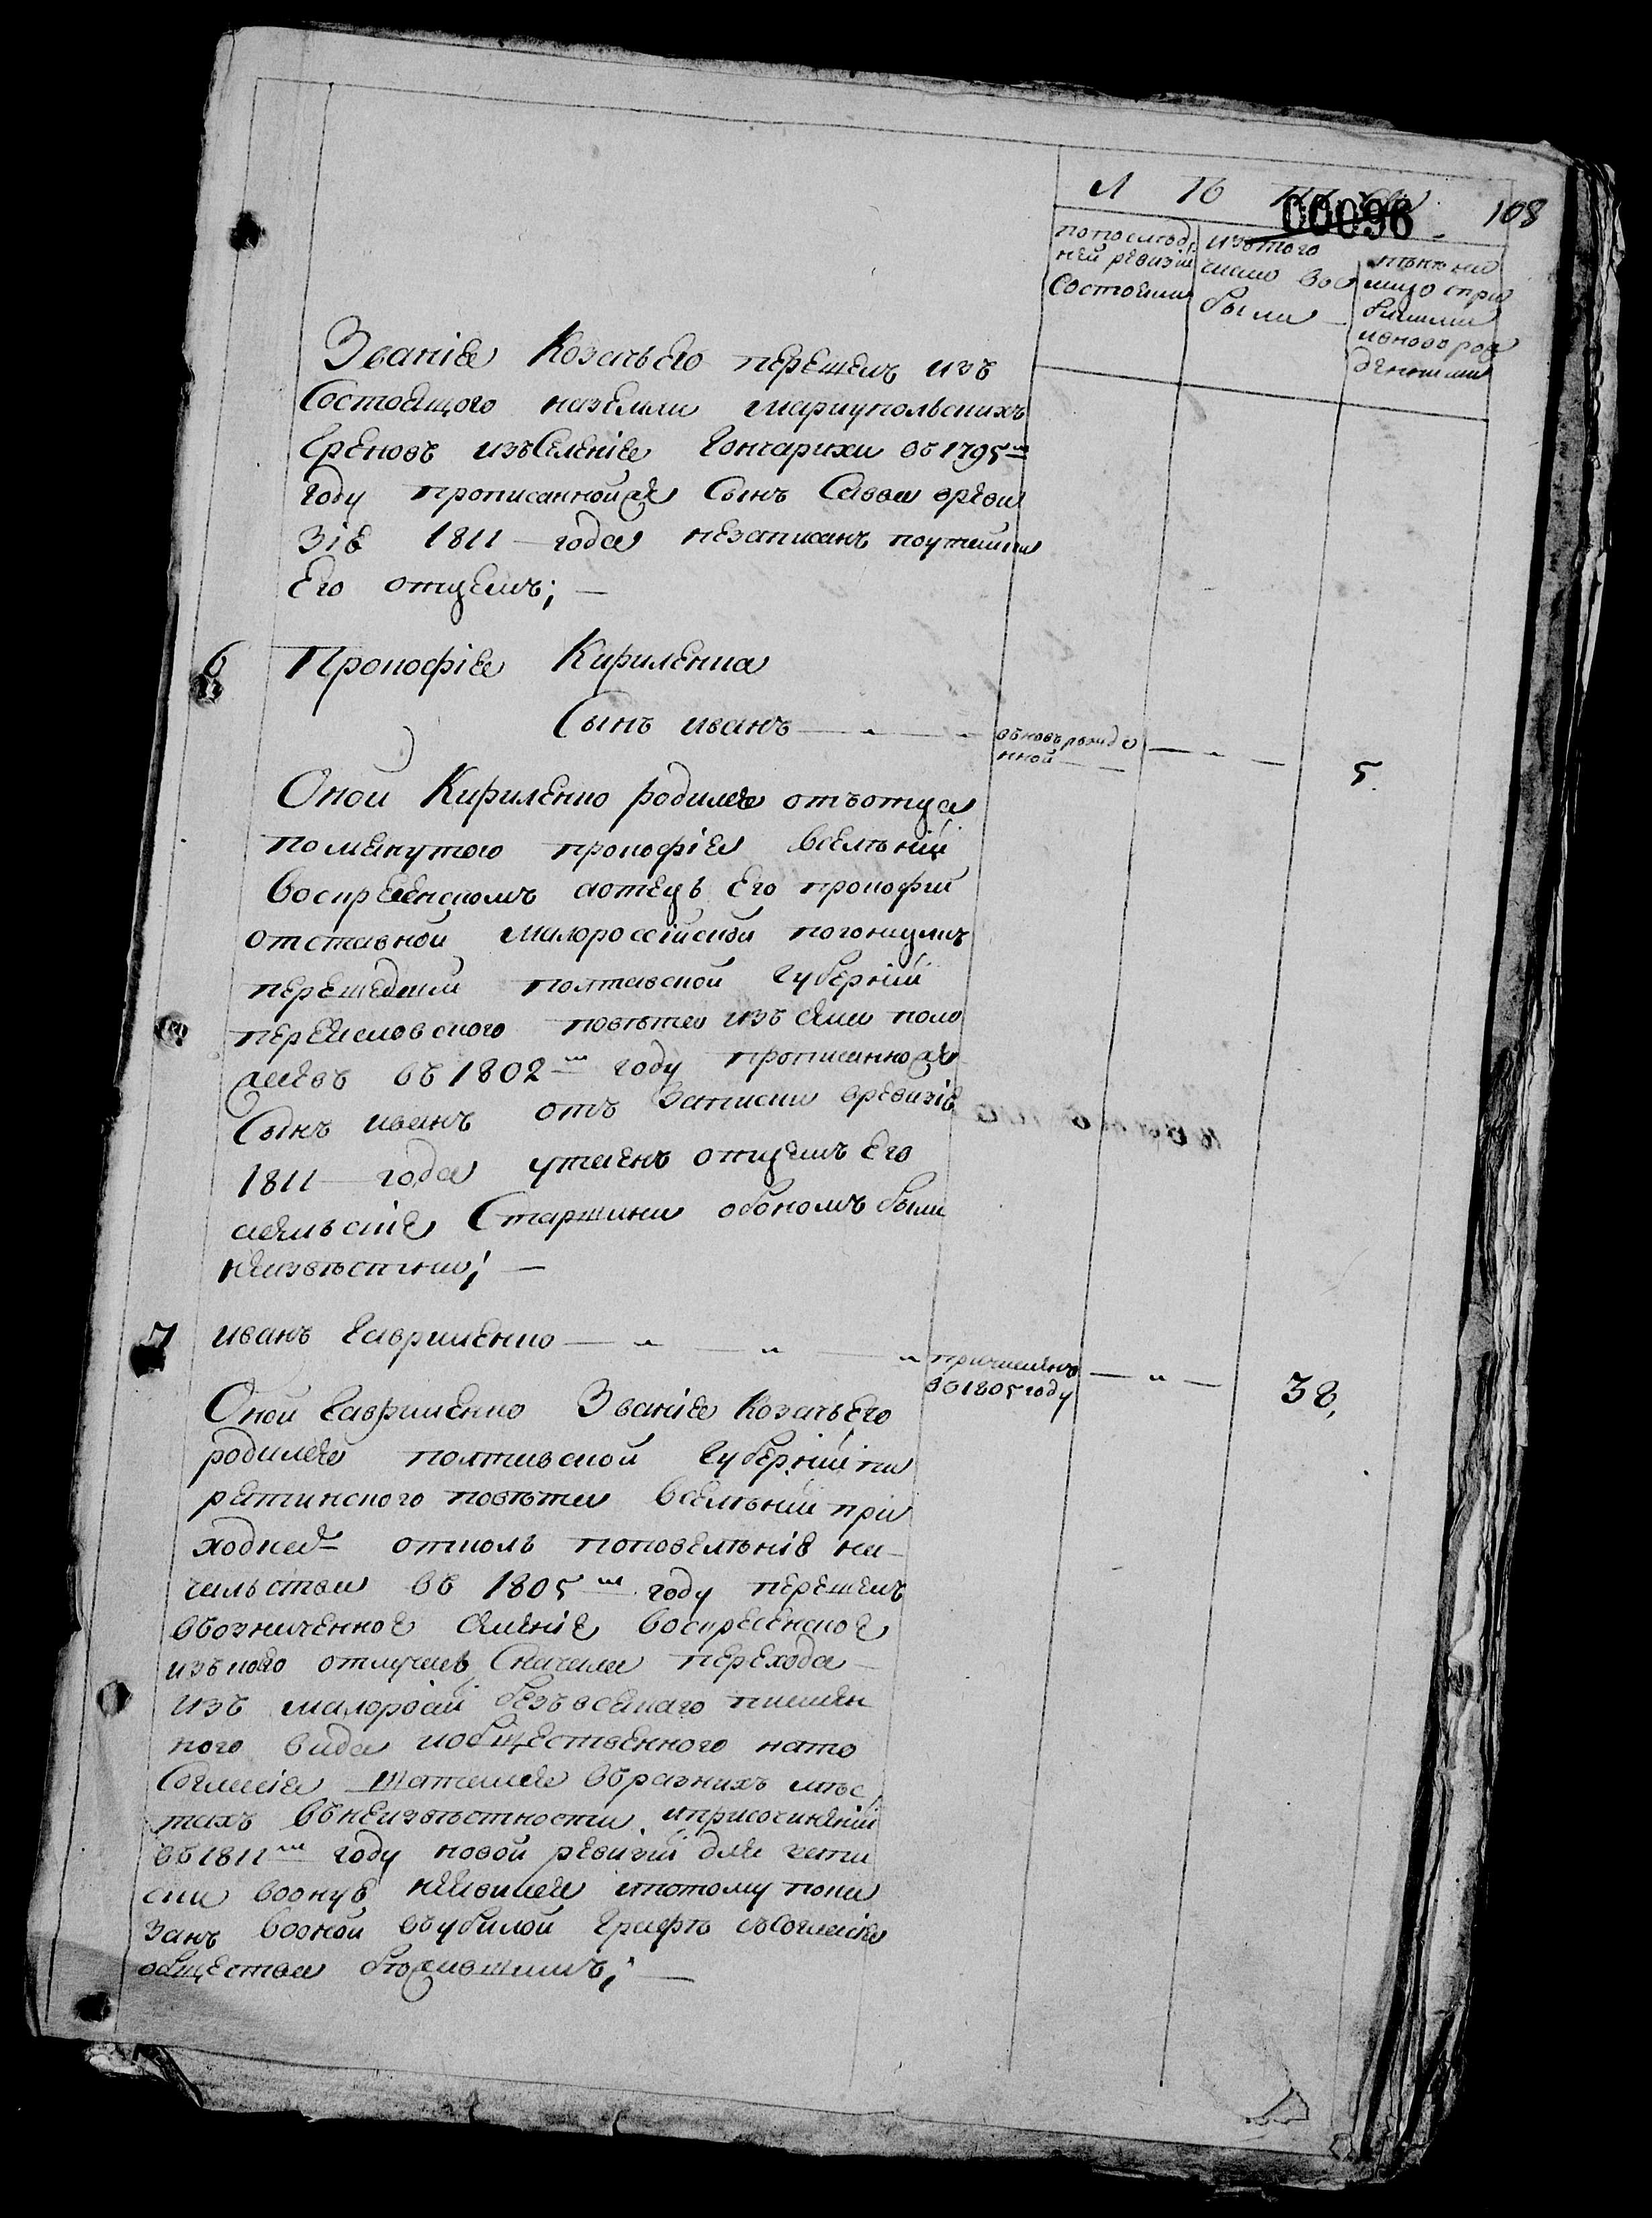 108
00096
Л Ѣ
попослѣд
ней ревизіи
состояли
изтого
число вы
были
нынѣ на
лицо спри
былыми
иноворож
денными
Званіе Козачьего перешелъ изъ
Состоящого наземли мариупольскихъ
Грековъ изъСеленіе Гончарихи въ 1795м
году прописанной Сынъ Савва вреви
зіе 1811 года незаписанъ поутайки
Его отцемъ;
6 Прокофіе Кириленка
Сынъ иванъ
вновьрожде
нной
5.
Оной Кириленко родился отъотца
помянутого прокофіе вселѣній
воскресенскомъ аотецъ Его прокофій
отставной малороссійской погонщикъ
перешедшій полтавской Губерній
переяславского повѣта изъ
въ 1802м году прописанной
Сынъ иванъ отъ Записки вревизіе
1811 года утаенъ отцемъ Его
аселькіе Старшини обономъ были
неизвѣстни;
7 иванъ Гавриленко
причисленъ
в 1805 году
38,
Оной Гавриленко Званіе Козачьего
родился полтавской Губерній пи
рятинского повѣта вселѣній при
отколь поповелѣніе на
чальства въ 1805м году перешелъ
вбозначенное селеніе воскресенское
изъкоего отлучаясь Сначала перехода
изъ малоросіи безъ всякаго писмен
ного вида иобщественного нато
Согласія шатался вразнихъ мѣс
тахъ внеизвѣстности, иприсочиненій
въ 1811м году новой ревизіи для запи
ски воонуе неявился ипотому пока
занъ вооной вубилой Графѣ сСогласія
общества бѣжавшимъ;